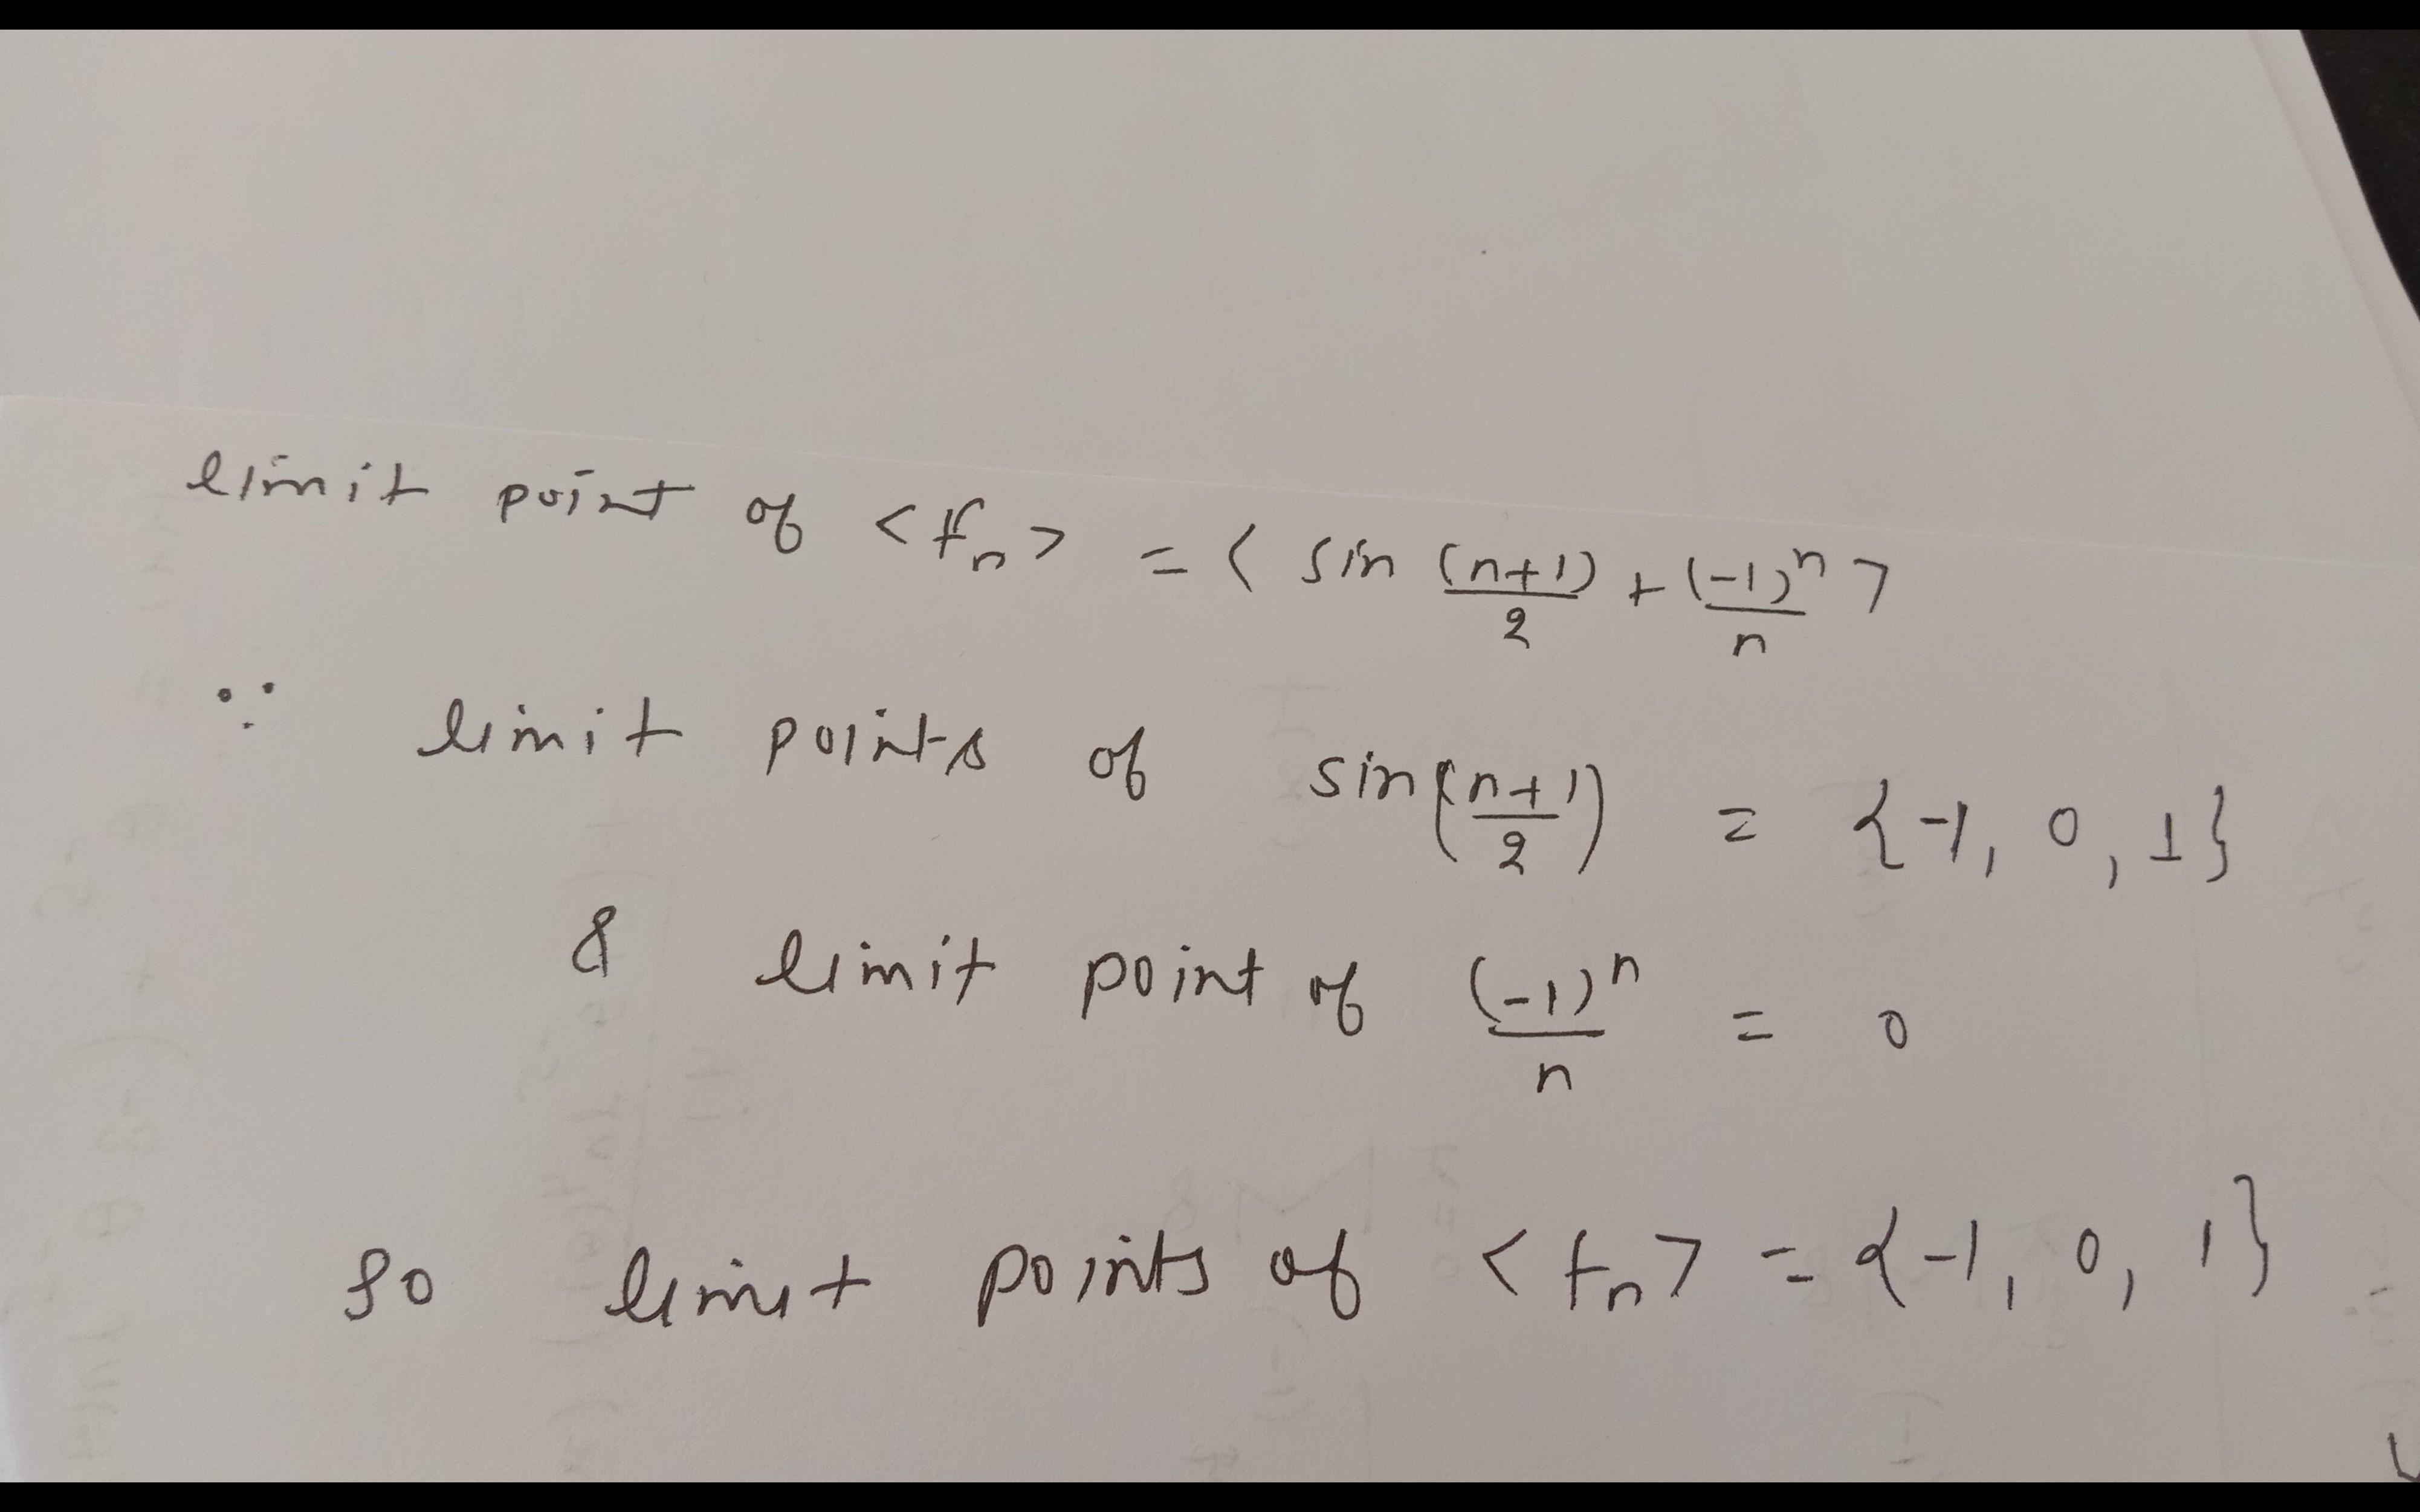 limit point of <fn> = < sin (n+1)/2 + (-1)^n/n >
∵ limit points of sin((n+1)/2) = {-1, 0, 1}
& limit point of (-1)^n/n = 0
So limit points of <fn> = {-1, 0, 1}